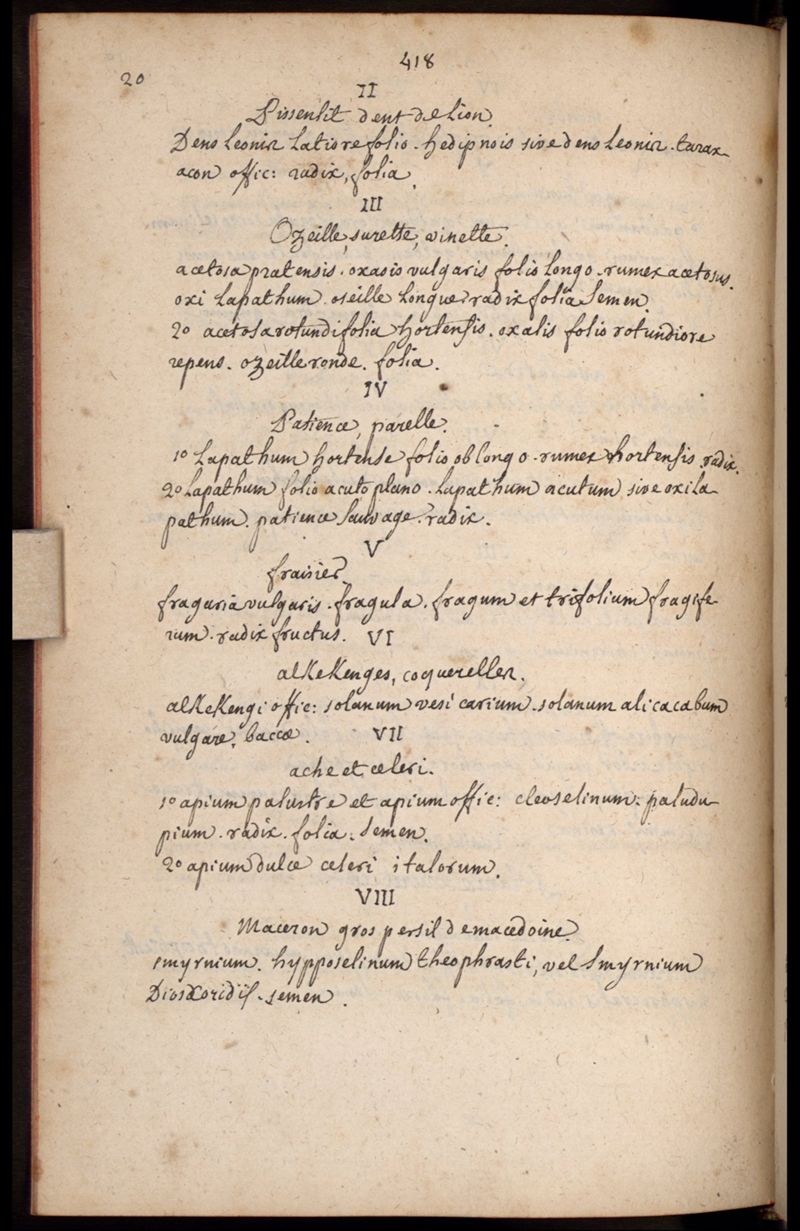 418
20
II
Pissenlit dent de Lion.
Dens Leonis Latiore folio. hedipnois sive dens Leonis. tarax
acon offic: radix, folia.
III
Ozeille, surette, vinette.
acetosa pratensis. oxasis vulgaris folio longo. rumex acetosus.
oxi Lapathum. oseille longue. radix folia semen.
2o acetosa rotundifolia hortensis. oxalis folio rotundiore
repens. ozeille ronde. folia.
IV
Patience, parelle.
1o Lapathum hortense folio oblongo. rumex hortensis. radix.
2o Lapathum folio acuto plano. Lapathum acutum sive oxila
pathum. patience sauvage. radix.
V
fraisier.
fragaria vulgaris. fragula. fragum et trifolium fragife
rum. radix fructus. VI
alkekenges, coquerelles.
alkekengi offic: solanum vesicarium. solanum alicacabum
vulgare, baccæ. VII
ache et celeri.
1o apium palustre et apium offic: eleoselinum. paludu
pium. radix. folia. semen.
2o apium dulce celeri italorum.
VIII
Maceron gros persil de macedoine.
smyrnium. hypposelinum theophrasti, vel Smyrnium
Dioskoridis. semen.